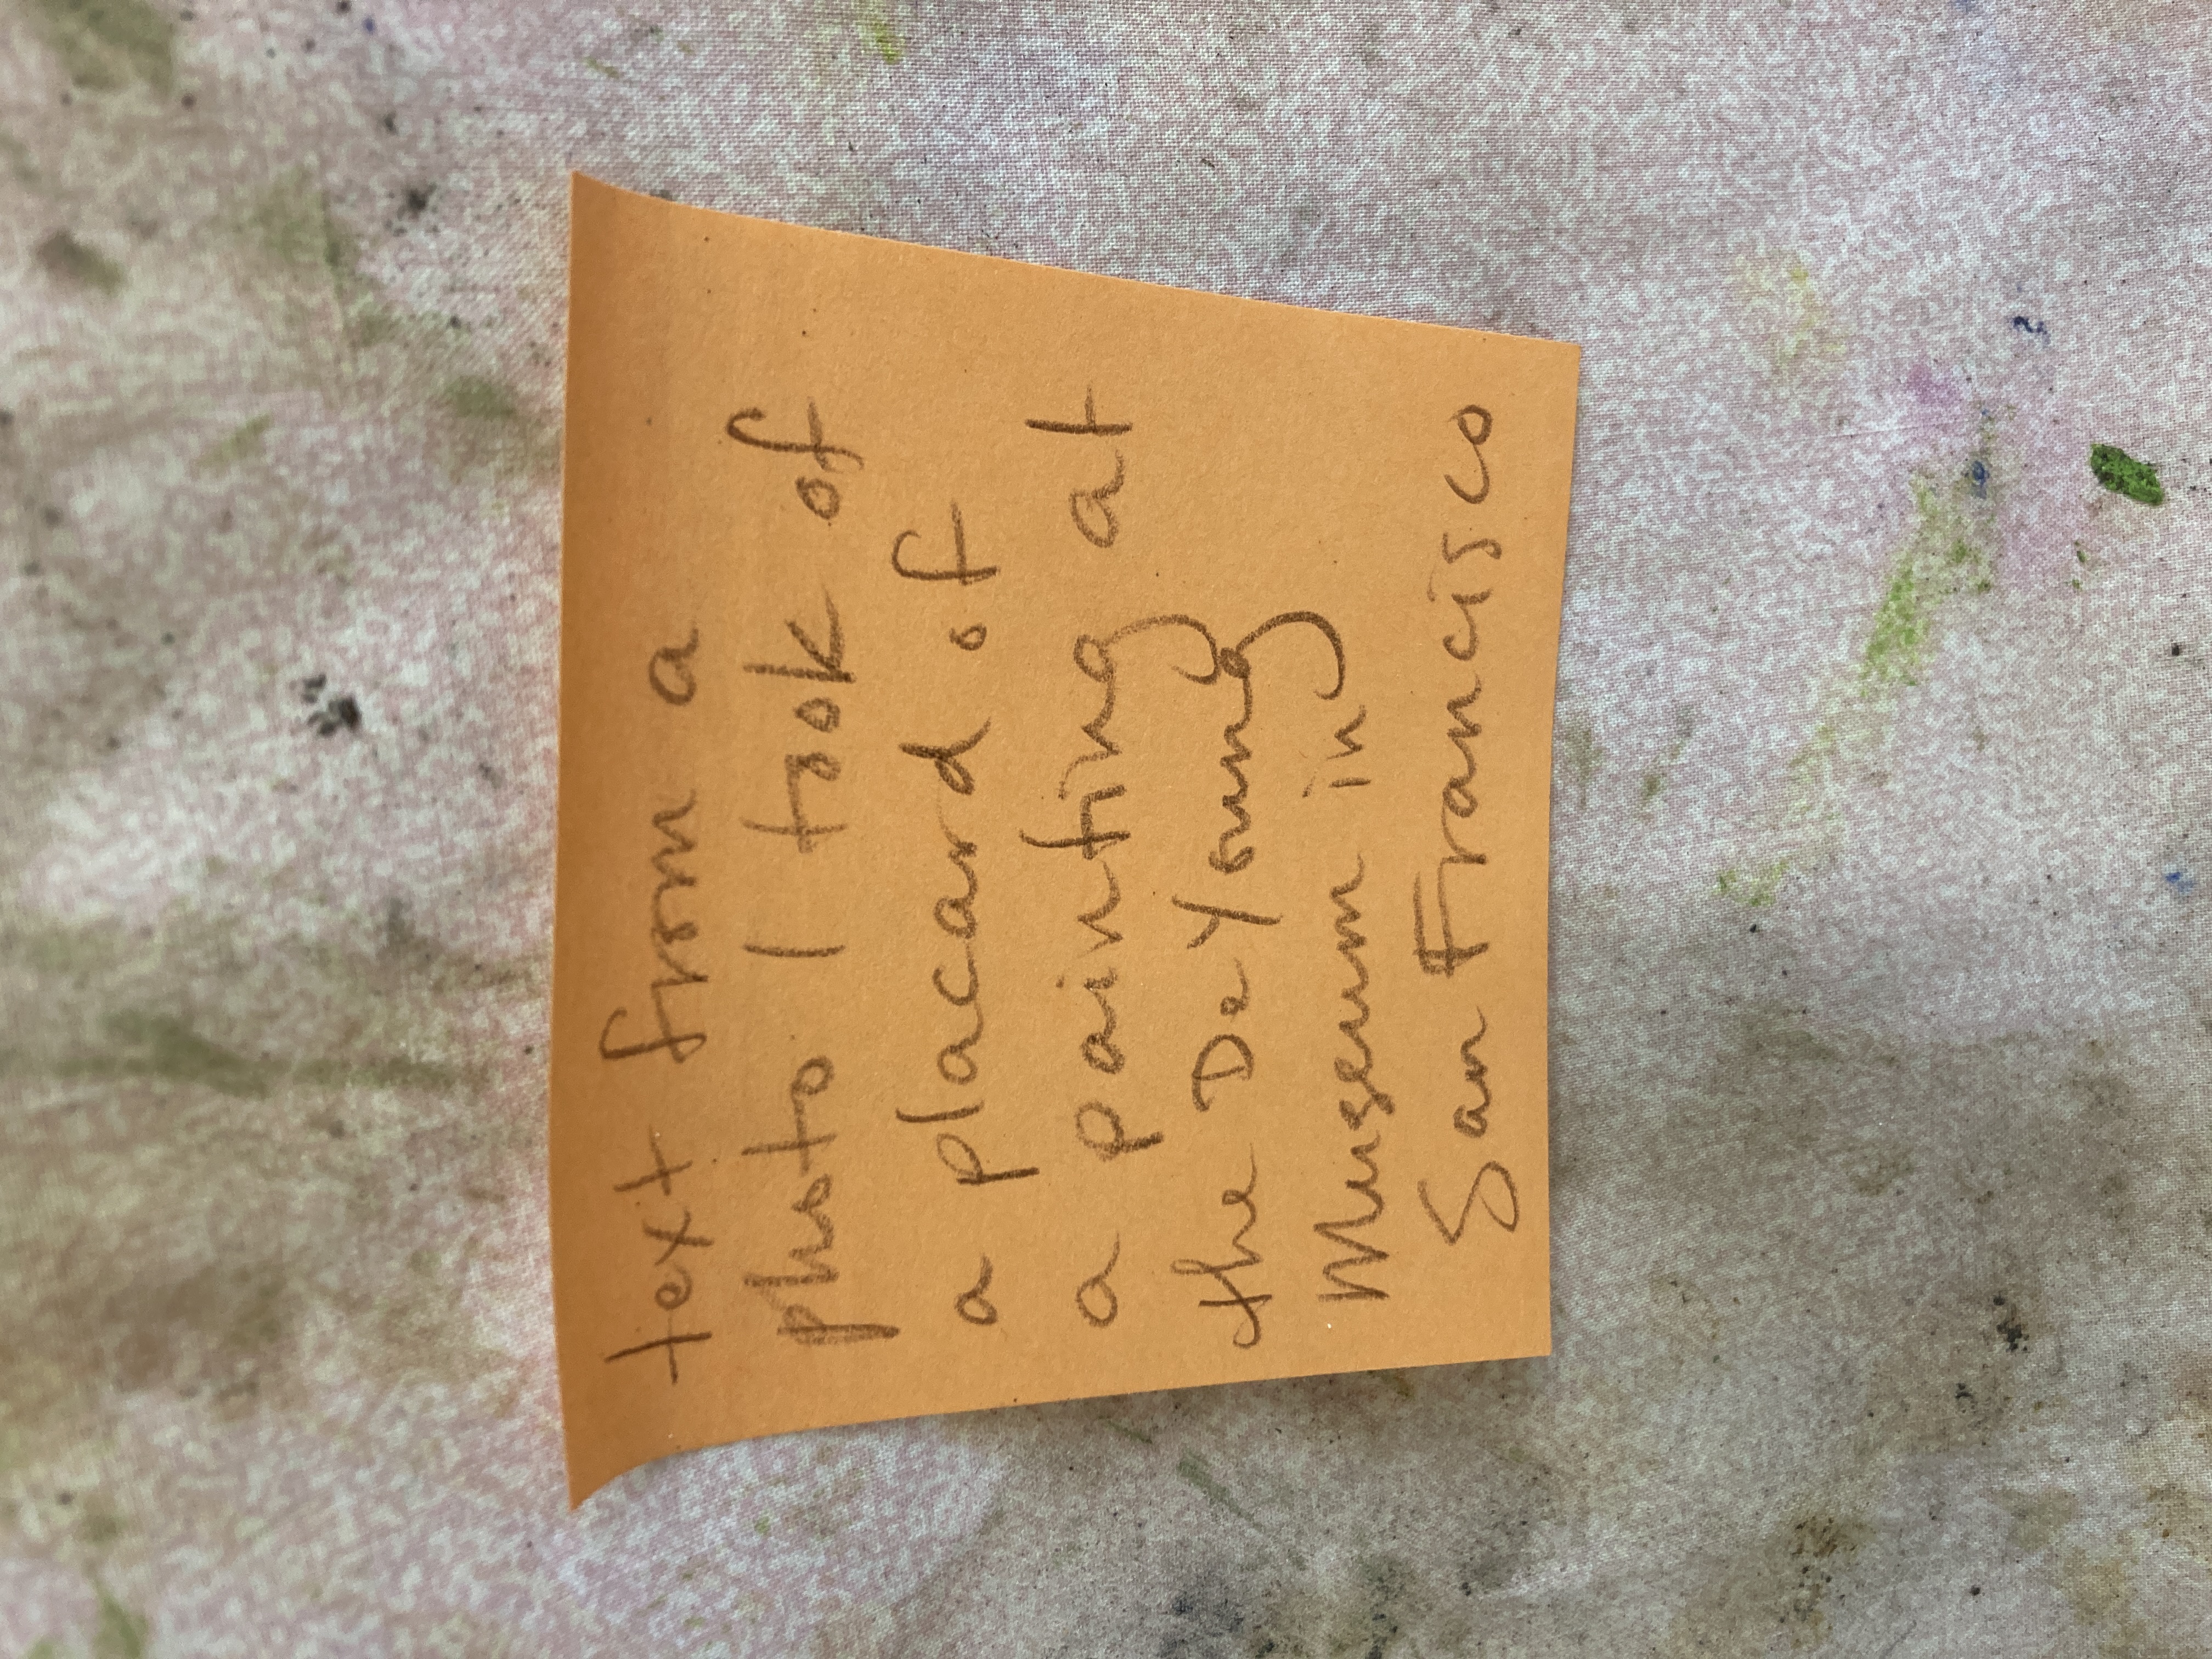 text from a
photo I took of
a placard of
a painting at
the De Young
Museum in
San Francisco